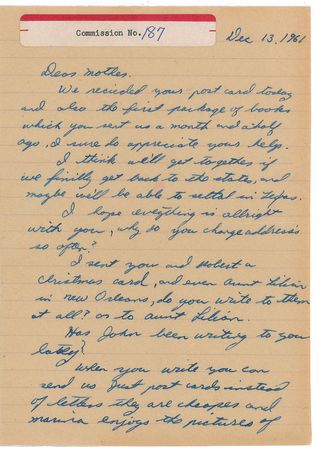 Commission No. 187
Dec 13, 1961
Dear mother.
We recided your post card today
and also the first package of books
which you sent us a month and a half
ago, I sure do appreciate your help.
I think we'll get together if
we finilly get back to the states, and
maybe we'll be able to settal in Texas.
I hope everything is allright
with you, why do you change address's
so often?
I sent you and Robert a
christmas card, and even aunt Lilian
in new Orleans, do you write to them
at all? or to aunt Lilian.
Has John been writing to you
lately?
When you write you can
send us just post cards instead
of letters they are cheaper and
marina enjoys the pictures of